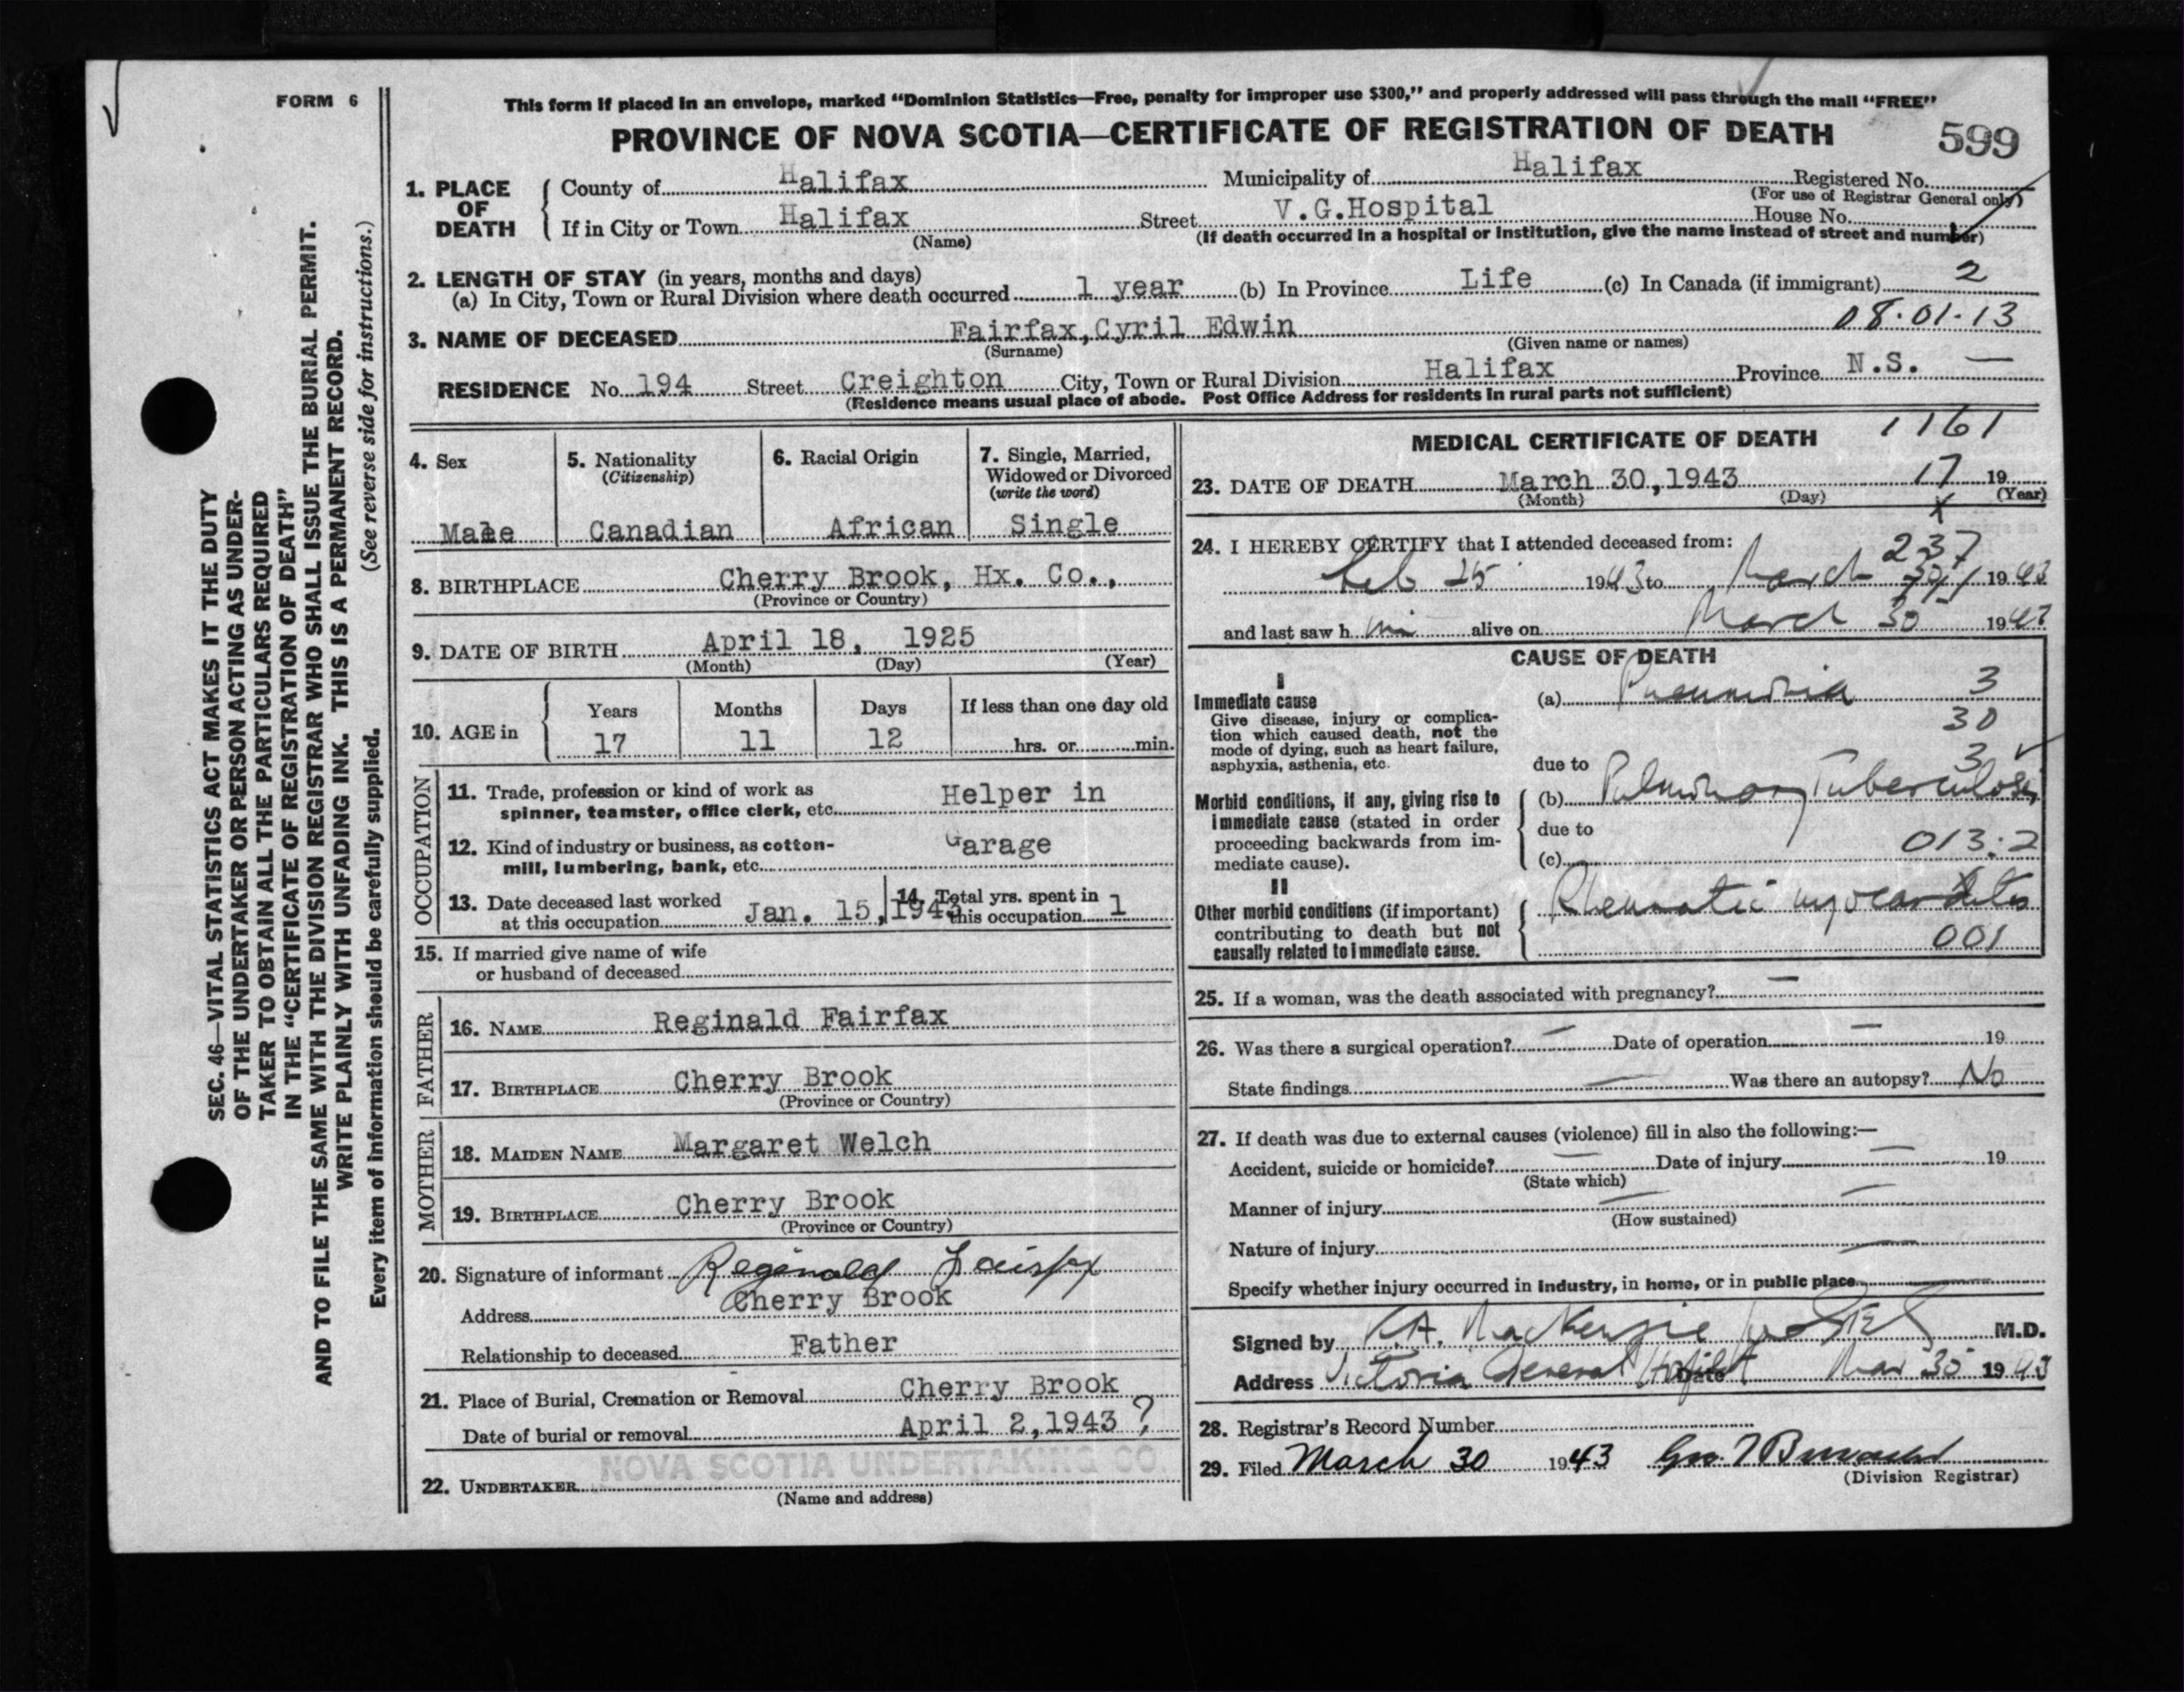 FORM 6
This form if placed in an envelope, marked “Dominion Statistics—Free, penalty for improper use $300,” and properly addressed will pass through the mail “FREE”
PROVINCE OF NOVA SCOTIA—CERTIFICATE OF REGISTRATION OF DEATH
599
1. PLACE OF DEATH
County of Halifax Municipality of Halifax Registered No.
(For use of Registrar General only)
If in City or Town Halifax Street V.G.Hospital House No.
(Name) (If death occurred in a hospital or institution, give the name instead of street and number)
2. LENGTH OF STAY (in years, months and days)
(a) In City, Town or Rural Division where death occurred 1 year (b) In Province Life (c) In Canada (if immigrant) 2
08·01·13
3. NAME OF DECEASED Fairfax, Cyril Edwin
(Surname) (Given name or names)
RESIDENCE No. 194 Street Creighton City, Town or Rural Division Halifax Province N.S. —
(Residence means usual place of abode. Post Office Address for residents in rural parts not sufficient)
4. Sex Male
5. Nationality (Citizenship) Canadian
6. Racial Origin African
7. Single, Married, Widowed or Divorced (write the word) Single
8. BIRTHPLACE Cherry Brook, Hx. Co.,
(Province or Country)
9. DATE OF BIRTH April 18, 1925
(Month) (Day) (Year)
10. AGE in Years 17 Months 11 Days 12 If less than one day old hrs. or min.
OCCUPATION
11. Trade, profession or kind of work as spinner, teamster, office clerk, etc. Helper in
12. Kind of industry or business, as cotton-mill, lumbering, bank, etc. Garage
13. Date deceased last worked at this occupation Jan. 15, 1943
14. Total yrs. spent in this occupation 1
15. If married give name of wife
or husband of deceased
FATHER
16. NAME Reginald Fairfax
17. BIRTHPLACE Cherry Brook
(Province or Country)
MOTHER
18. MAIDEN NAME Margaret Welch
19. BIRTHPLACE Cherry Brook
(Province or Country)
20. Signature of informant Reginald Fairfax
Address Cherry Brook
Relationship to deceased Father
21. Place of Burial, Cremation or Removal Cherry Brook
Date of burial or removal April 2, 1943 ?
NOVA SCOTIA UNDERTAKING CO.
22. UNDERTAKER
(Name and address)
1161
MEDICAL CERTIFICATE OF DEATH
23. DATE OF DEATH March 30, 1943 17 19
(Month) (Day) (Year)
x
24. I HEREBY CERTIFY that I attended deceased from:
237
Feb 25 1943 to March 30 1943
and last saw him alive on March 30 1943
CAUSE OF DEATH
I
Immediate cause (a) Pneumonia 3
Give disease, injury or complication which caused death, not the mode of dying, such as heart failure, asphyxia, asthenia, etc.
30
due to 3
Morbid conditions, if any, giving rise to immediate cause (stated in order proceeding backwards from immediate cause).
(b) Pulmonary Tuberculosis
due to
(c) 013:2
II
Other morbid conditions (if important) contributing to death but not causally related to immediate cause.
Rheumatic myocarditis
001
25. If a woman, was the death associated with pregnancy? —
26. Was there a surgical operation? — Date of operation — 19
State findings — Was there an autopsy? No
27. If death was due to external causes (violence) fill in also the following:—
Accident, suicide or homicide? — Date of injury — 19
(State which)
Manner of injury —
(How sustained)
Nature of injury —
Specify whether injury occurred in industry, in home, or in public place —
Signed by MacKenzie M.D.
Address Victoria General Hospital Date Mar 30 1943
28. Registrar’s Record Number
29. Filed March 30 1943
(Division Registrar)
SEC. 46—VITAL STATISTICS ACT MAKES IT THE DUTY
OF THE UNDERTAKER OR PERSON ACTING AS UNDER-
TAKER TO OBTAIN ALL THE PARTICULARS REQUIRED
IN THE “CERTIFICATE OF REGISTRATION OF DEATH”
AND TO FILE THE SAME WITH THE DIVISION REGISTRAR WHO SHALL ISSUE THE BURIAL PERMIT.
WRITE PLAINLY WITH UNFADING INK. THIS IS A PERMANENT RECORD.
(See reverse side for instructions.)
Every item of information should be carefully supplied.